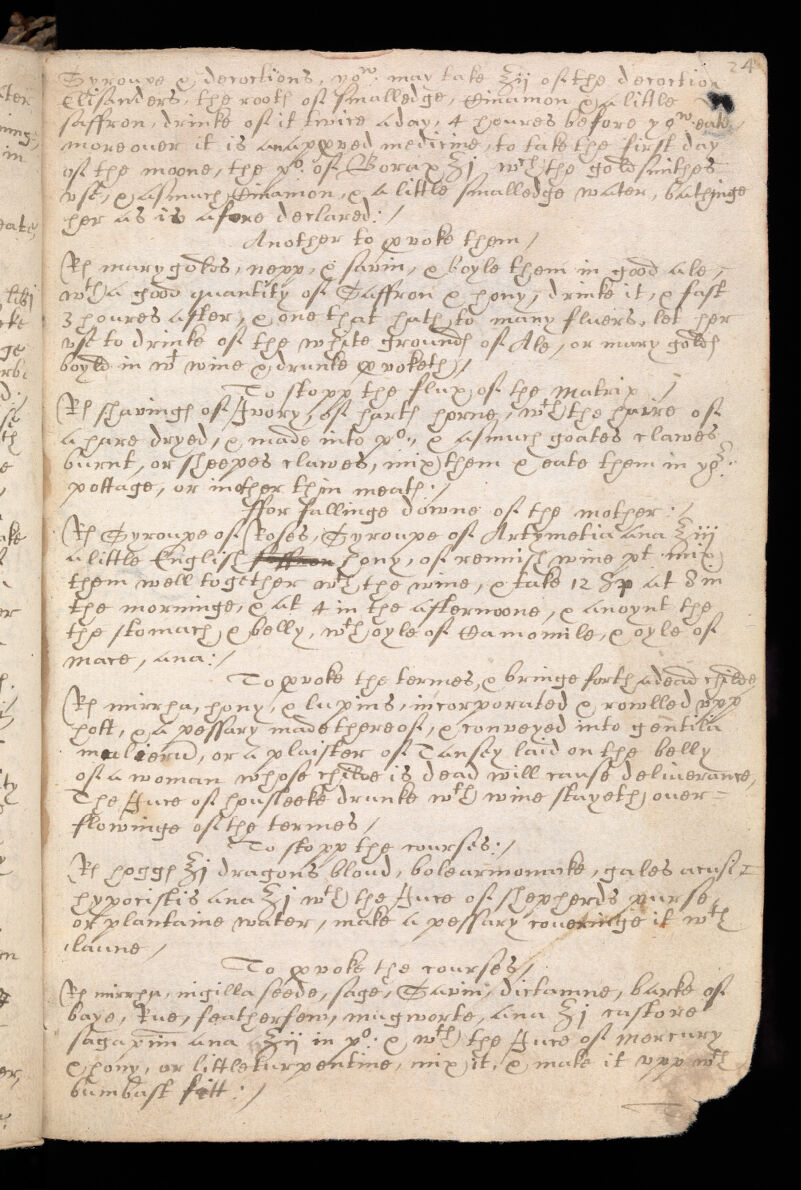 24
Syroupe & decoctions, yow may take ℥ij of the decoction
Elisanders, the roots of smalledge, Cinamon & a little
saffron, drinke of it twice a day, 4 houres before yow eate,
moreover it is an approved medicine, to take the first day
of the moone, the po: of Borax ʒj wch the goldsmithes
use, & asmuch Cinamon, & a little smalledge water, bathinge
her as is afore declared:/
Another to pvoke them/
Rx marygolds, nepp, & savin, & boyle them in good ale,
wth a good quantity of Saffron & hony, drinke it, & fast
3 houres after, & one that hath to many fluers, let her
use to drinke of the white grounds of Ale, or mary golds
boyld in wt wine & drunke pvoketh,/
To stopp the flux of the Matrix /
Rx shavings of Ivory, of harts horne, wth the haire of
a hare dryed, & made into po:, & asmuch goates clawes
burnt, or sheepes clawes, mix them & eate them in yor:
pottage, or in other thin meats:/
ffor fallinge downe of the mother:/
Rx Syroupe of Roses, Syroupe of Artymetia ana ℥iij
a little English hony, of rennish wine pt mix
them well together wth the wine, & take 12 at 8 in
the morninge, & at 4 in the afternoone, & anoynt the
the stomach & belly, wth oyle of Camomile, & oyle of
mace, ana:/
To pvoke the termes, & bringe forth a dead childe
Rx mirrha, hony, & lupins, incorporated & rowlled upp
hott, & a pessary made thereof, & conveyed into gentilia
mulierū, or a plaister of Tansey laid on the belly
of a woman whose childe is dead will cause deliverance,
The Juce of housleeke drunke wth wine stayeth over=
flowinge of the termes/
To stopp the courses:/
Rx hoggs ʒj dragons bloud, bolearmoniake, gales
hypocistis ana ʒj wth the Juce of shepherds purse,
or plantaine water, make a pessary coveringe it wth
laune/
To pvoke the courses/
Rx mirrha, nigilla seede, sage, Savin, dictamne, barke of
baye, Rue, featherfew, mugworte, ana ʒj castore
sagapinū ana ʒij in po: & wth the Juce of Mercury
& hony, or little turpentine, mix it, & make it upp wth
bumbast fitt:/